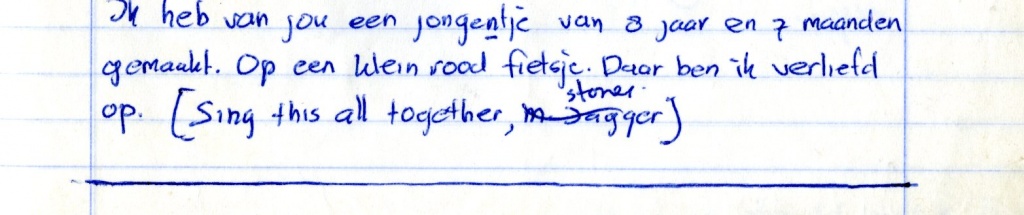 Ik heb van jou een jongentje van 8 jaar en 7 maanden
gemaakt. Op een klein rood fietsje. Daar ben ik verliefd
op. [Sing this all together, m Jagger stones.]